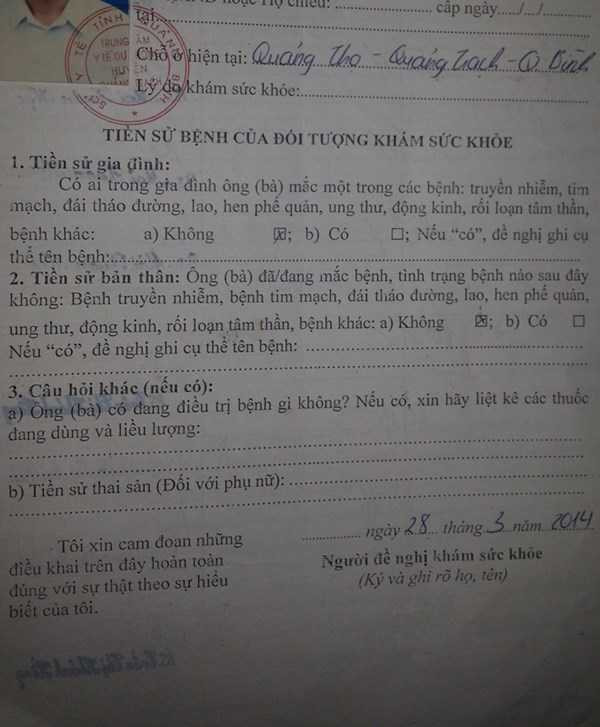 hoặc Hộ chiếu: ........................ cấp ngày...../.../..........
tại: ........................
Chỗ ở hiện tại: Quảng Thọ - Quảng Trạch - Q. Bình
Lý do khám sức khỏe:........................
TỈNH QUẢNG BÌNH
TRUNG TÂM
Y TẾ DỰ
HUYỆN
TIỀN SỬ BỆNH CỦA ĐỐI TƯỢNG KHÁM SỨC KHỎE
1. Tiền sử gia đình:
Có ai trong gia đình ông (bà) mắc một trong các bệnh: truyền nhiễm, tim
mạch, đái tháo đường, lao, hen phế quản, ung thư, động kinh, rối loạn tâm thần,
bệnh khác: a) Không ☒; b) Có ☐; Nếu “có”, đề nghị ghi cụ
thể tên bệnh:........................
2. Tiền sử bản thân: Ông (bà) đã/đang mắc bệnh, tình trạng bệnh nào sau đây
không: Bệnh truyền nhiễm, bệnh tim mạch, đái tháo đường, lao, hen phế quản,
ung thư, động kinh, rối loạn tâm thần, bệnh khác: a) Không ☒; b) Có ☐
Nếu “có”, đề nghị ghi cụ thể tên bệnh: ........................
3. Câu hỏi khác (nếu có):
a) Ông (bà) có đang điều trị bệnh gì không? Nếu có, xin hãy liệt kê các thuốc
đang dùng và liều lượng:
b) Tiền sử thai sản (Đối với phụ nữ): ........................
............ ngày 28 tháng 3 năm 2014
Tôi xin cam đoan những
điều khai trên đây hoàn toàn
đúng với sự thật theo sự hiểu
biết của tôi.
Người đề nghị khám sức khỏe
(Ký và ghi rõ họ, tên)